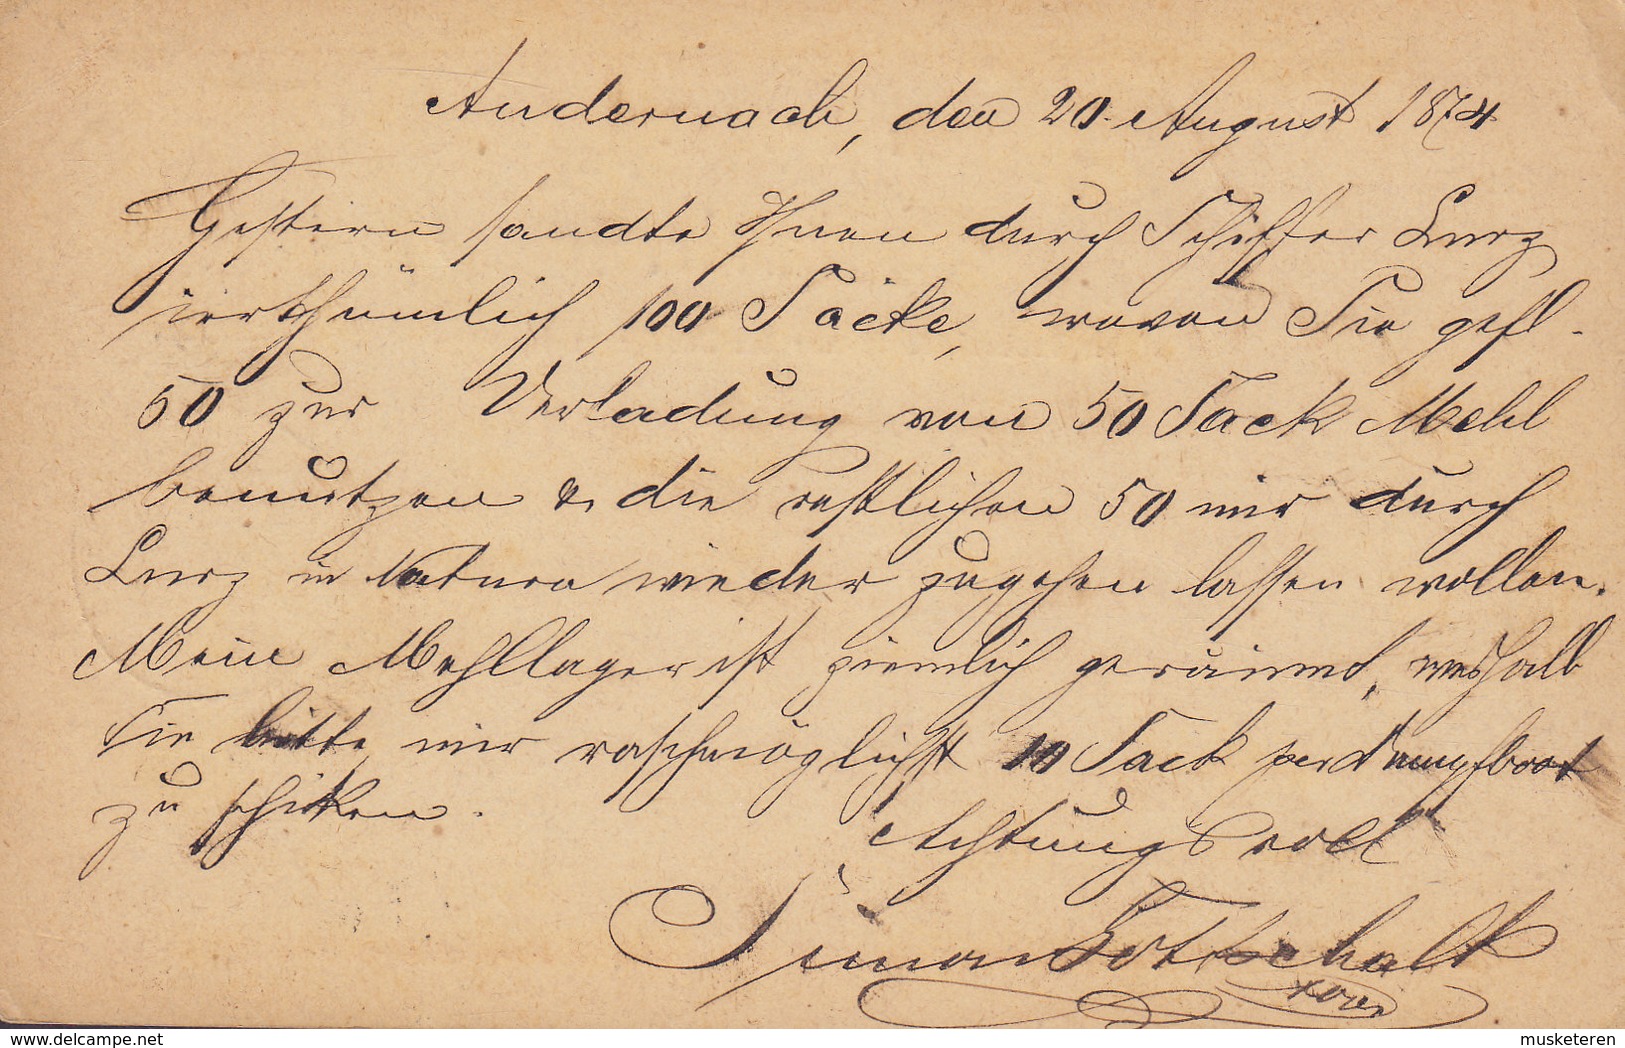 Andernach, den 20. August 1874
Gestern sandte Ihnen durch Schiffer Lurz
irrthümlich 100 Säcke, wovon Sie gefl.
50 zur Verladung von 50 Sack Mehl
benutzen & die restlichen 50 mir durch
Lurz in Natura wieder zugehen lassen wollen.
Mein Mehllager ist ziemlich geräumt, weshalb
Sie bitte mir raschmöglichst 10 Sack per Dampfboot
zu schicken.
Achtungsvoll
Simon Gottschalk
www.delcampe.net
musketeren